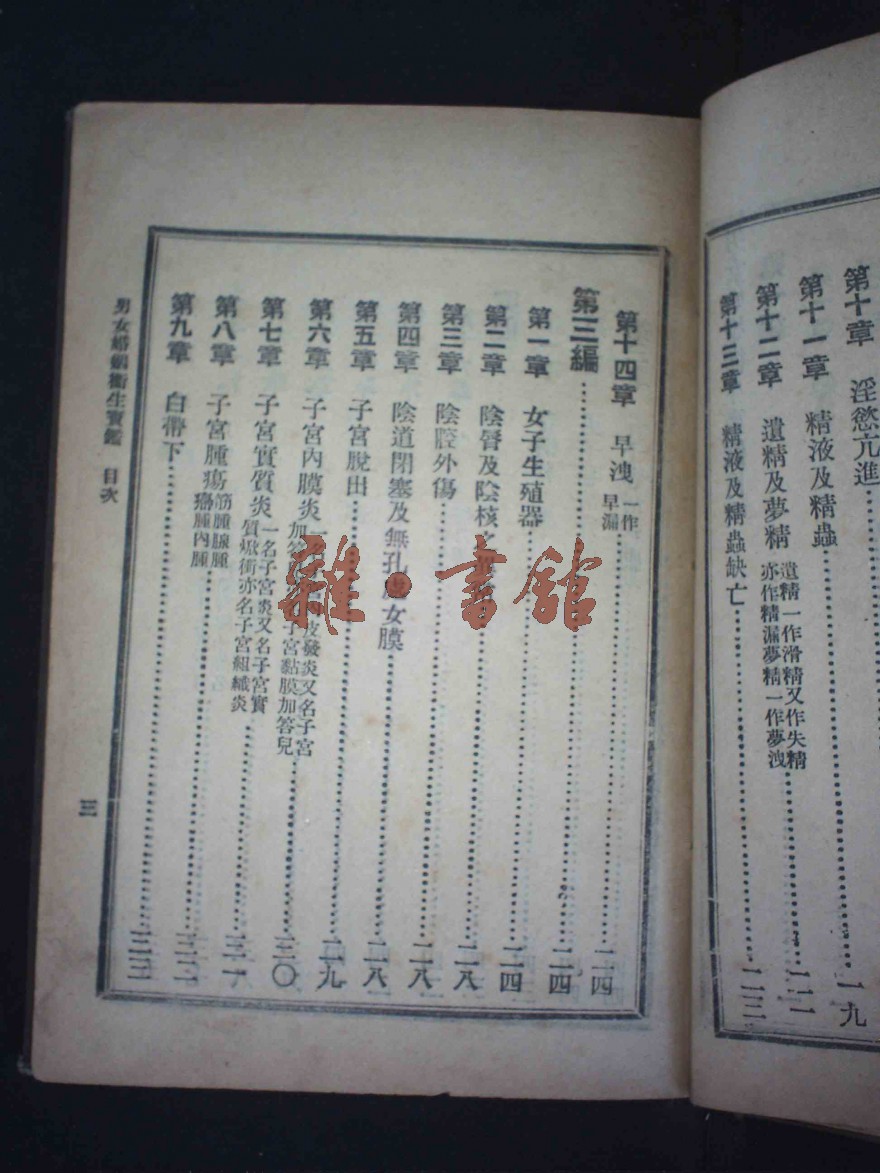 第十章 淫慾亢進 一九
第十一章 精液及精蟲
第十二章 遺精及夢精 遺精一作滑精又作失精亦作精漏夢精一作夢洩
第十三章 精液及精蟲缺亡
第十四章 早洩 一作早漏 二四
第三編 二四
第一章 女子生殖器 二四
第二章 陰脣及陰核
第三章 陰腔外傷 二八
第四章 陰道閉塞及無孔處女膜 二八
第五章 子宮脫出 二九
第六章 子宮內膜炎 皮發炎又名子宮 子宮黏膜加答兒 三〇
第七章 子宮實質炎 一名子宮炎又名子宮實質焮衝亦名子宮組織炎 三一
第八章 子宮腫瘍 筋腫腺腫癌腫內腫
第九章 白帶下 三三
男女婚姻衛生寶鑑 目次
三
雜·書館